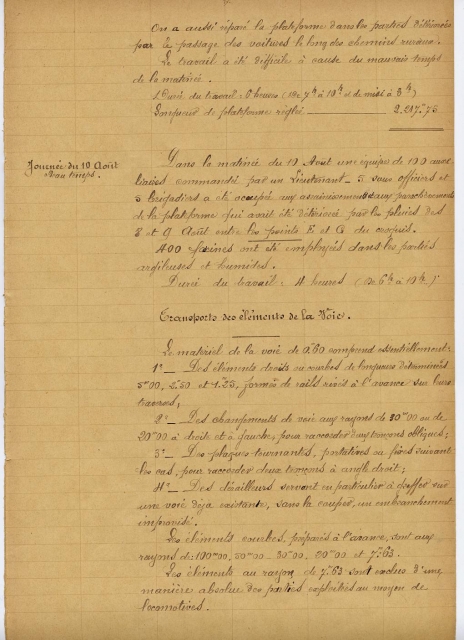 On a aussi réparé la plateforme dans les parties détériorées
par le passage des voitures le long des chemins ruraux.
Le travail a été difficile à cause du mauvais temps
de la matinée.
Durée du travail: 8 heures (De 7h à 10h et de midi à 5h)
Longueur de plateforme réglée 2.217m75
Journée du 10 Août
Beau temps.
Dans la matinée du 10 Août une équipe de 100
commandé par un Lieutenant 5 sous officiers et
5 Brigadiers a été occupée aux assainissements aux parachèvements
de la plateforme qui avait été détériorée par les pluies des
8 et 9 Août entre les points E et G du croquis.
400 fascines ont été employées dans les parties
argileuses et humides.
Durée du travail: 4 heures (De 6h à 10h)
Transports des éléments de la Voie.
Le matériel de la voie de 0,60 comprend essentiellement:
1o Des éléments droits ou courbes de longueurs déterminées
5m00, 2.50 et 1.25, formés de rails rivés à l'avance sur leurs
traverses;
2o Des changements de voie aux rayons de 30m00 ou de
20m00 à droite et à gauche, pour raccorder deux tronçons obliques;
3o Des plaques tournantes, portatives ou fixes suivant
les cas, pour raccorder deux tronçons à angle droit;
4o Des dérailleurs servant en particulier à greffer sur
une voie déjà existante, sans la couper, un embranchement
improvisé.
Les éléments courbes, préparés à l'avance, sont aux
rayons de: 100m00, 50m00 30m00 20m00 et 7m63.
Les éléments au rayon de 7m63 sont exclus d'une
manière absolue des parties exploitées au moyen de
locomotives.